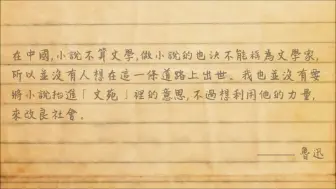 在中國,小說不算文學,做小說的也決不能稱為文學家,
所以並沒有人想在這一條道路上出世。我也並沒有要
將小說抬進「文苑」裡的意思,不過想利用他的力量,
來改良社會。
——— 魯迅